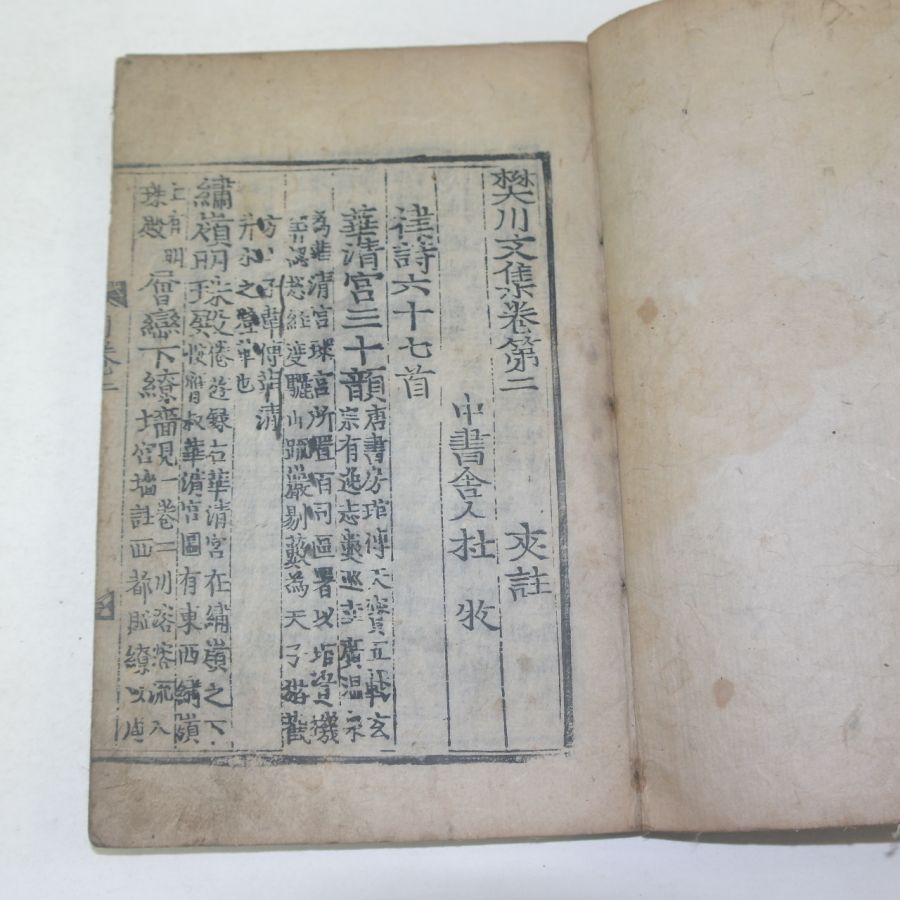 樊川文集卷第二 夾註
中書舍人杜 牧
律詩六十七首
華清宮三十韻唐書房琯傳天寶五載玄
宗有逸志數巡幸廣溫泉
為華清宮環宮所置百司區署以琯資機
算詔總經度驪山疏巖剔藪為天子游觀
方 子韋傳清
繡嶺明珠殿倦遊錄云華清宮在繡嶺之下
殷晉叔華清宮圖有東西繡嶺
上有明
珠殿
層巒下繚墻見一卷二川溶溶流入
宮墻註西都賦繚以周